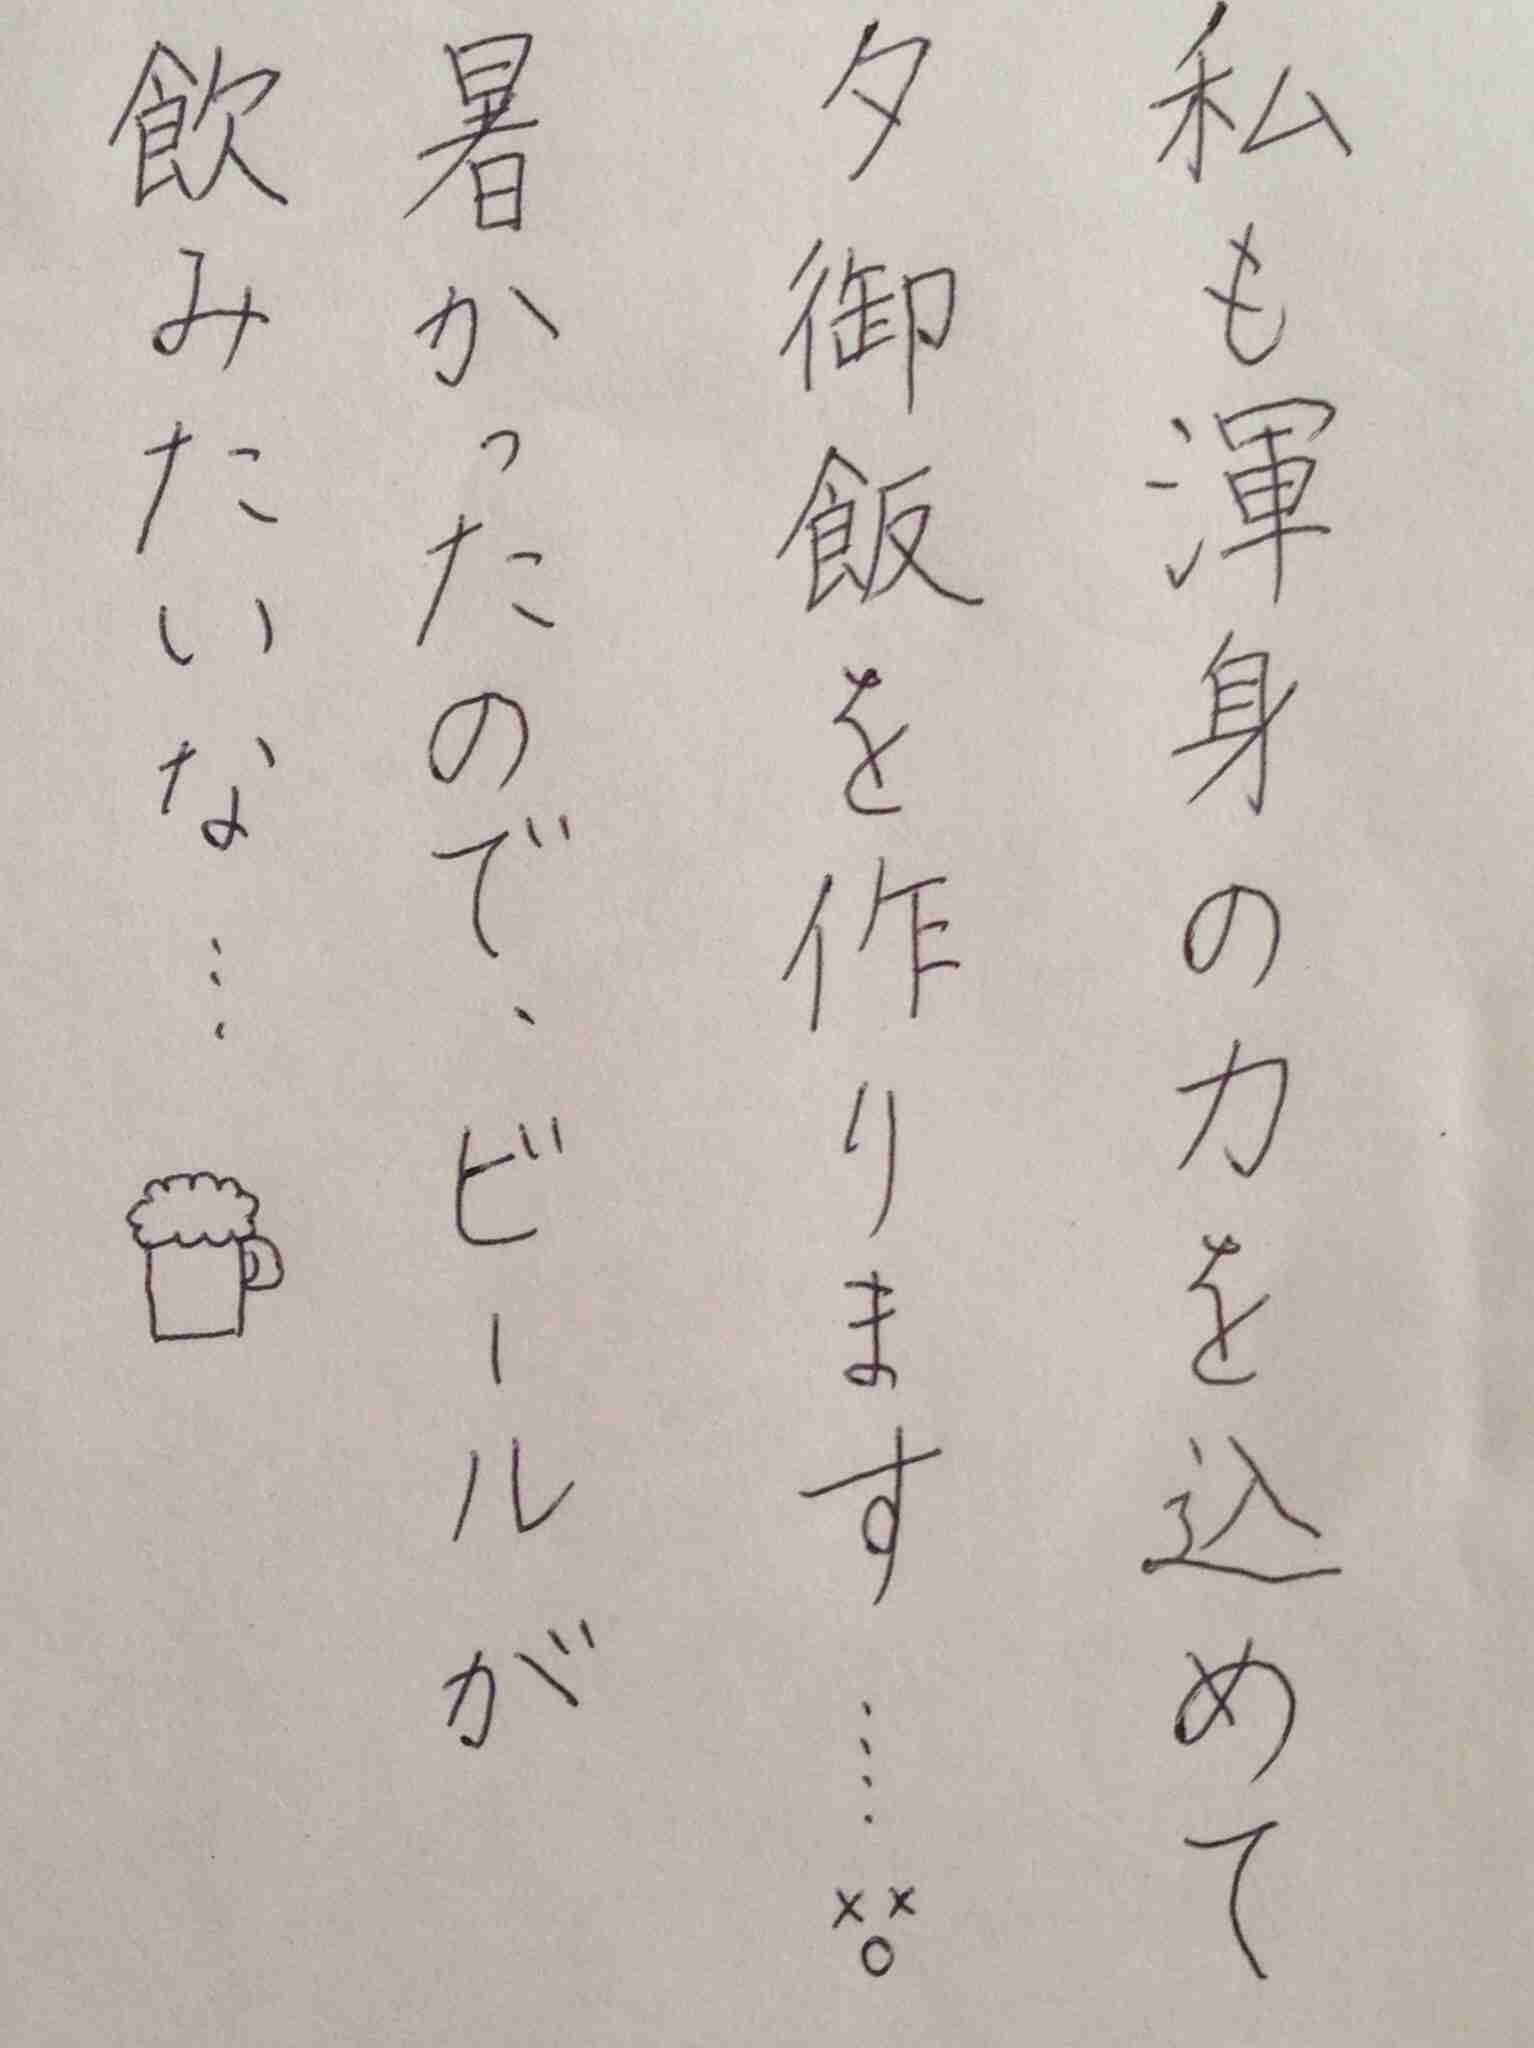 私も渾身の力を込めて
夕御飯を作ります‥‥
暑かったので、ビールが
飲みたいな…